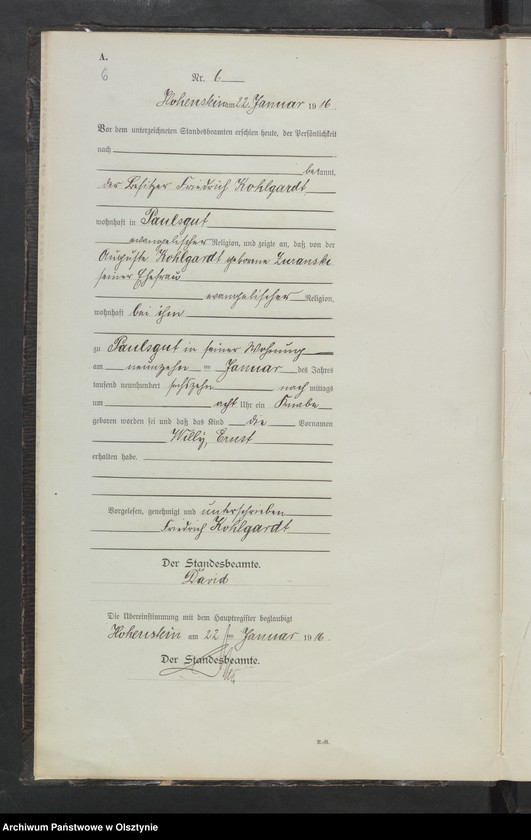 A.
6
Nr. 6
Hohenstein am 22. Januar 1916.
Vor dem unterzeichneten Standesbeamten erschien heute, der Persönlichkeit
nach
bekannt,
der Besitzer Friedrich Kohlgardt
wohnhaft in Paulsgut
evangelischer Religion, und zeigte an, daß von der
Auguste Kohlgardt geborene Zuranski
seiner Ehefrau
evangelischer Religion,
wohnhaft bei ihm
zu Paulsgut in seiner Wohnung
am neunzehn ten Januar des Jahres
tausend neunhundert sechszehn nach mittags
um acht Uhr ein Knabe
geboren worden sei und daß das Kind die Vornamen
Willy, Ernst
erhalten habe.
Vorgelesen, genehmigt und unterschrieben
Friedrich Kohlgardt
Der Standesbeamte.
David
Die Übereinstimmung mit dem Hauptregister beglaubigt
Hohenstein am 22 ten Januar 1916.
Der Standesbeamte.
Archiwum Państwowe w Olsztynie